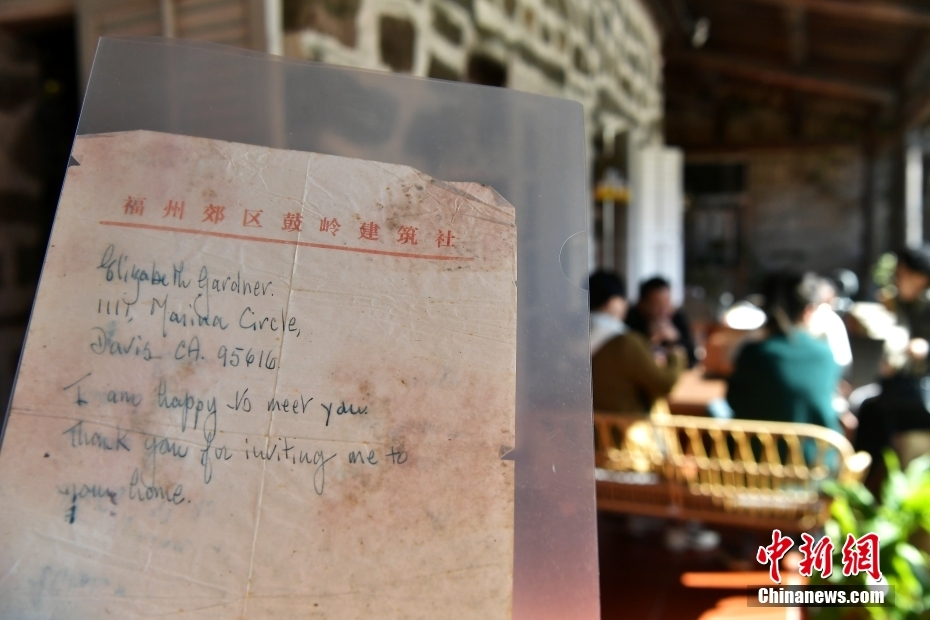 福州郊区鼓岭建筑社
Elizabeth Gardner.
1117, Marina Circle,
Davis CA. 95616
I am happy to meet you.
Thank you for inviting me to
your home.
中新网
Chinanews.com